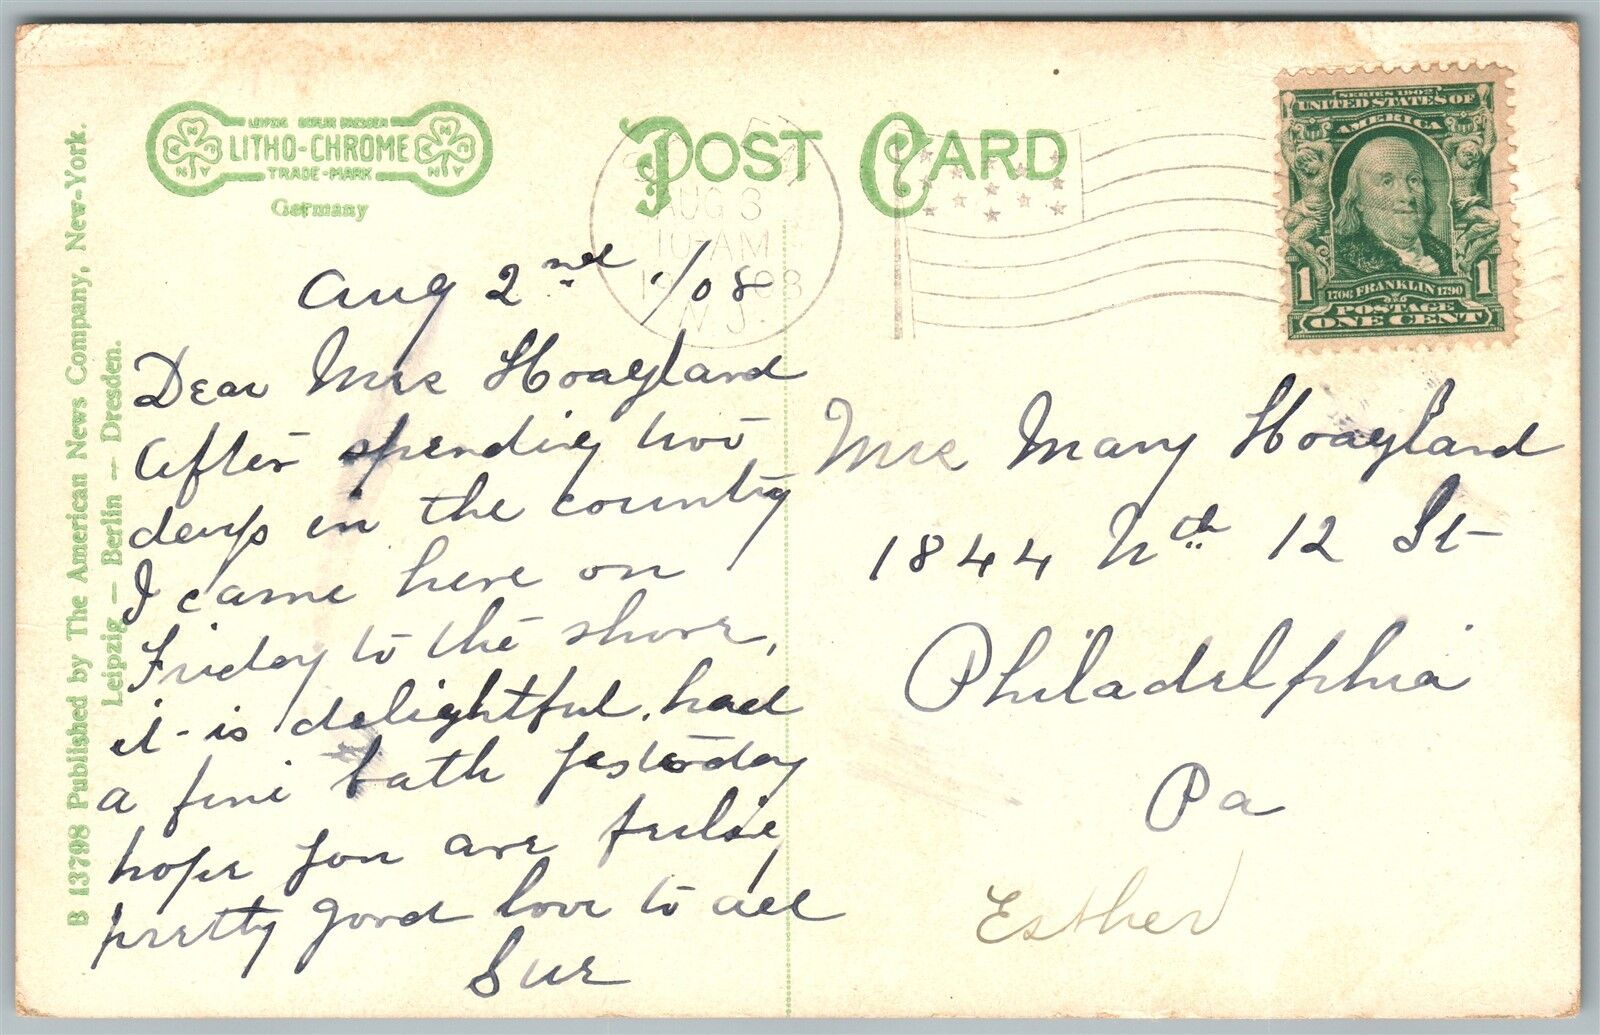 B 13798 Published by The American News Company, New-York.
Leipzig — Berlin — Dresden.
LEIPZIG BERLIN DRESDEN
LITHO-CHROME
TRADE-MARK
N Y
N Y
Germany
POST CARD
AUG 3
10-AM
N.J.
SERIES 1902
UNITED STATES OF
AMERICA
1 1
1706 FRANKLIN 1790
POSTAGE
ONE CENT
Aug 2nd /08
Dear Mrs Hoagland
After spending two
days in the country
I came here on
Friday to the shore,
it is delightful, had
a fine bath yesterday
hope you are
pretty good love to all
Sue
Mrs Mary Hoagland
1844 Nth 12 St
Philadelphia
Pa
Esther